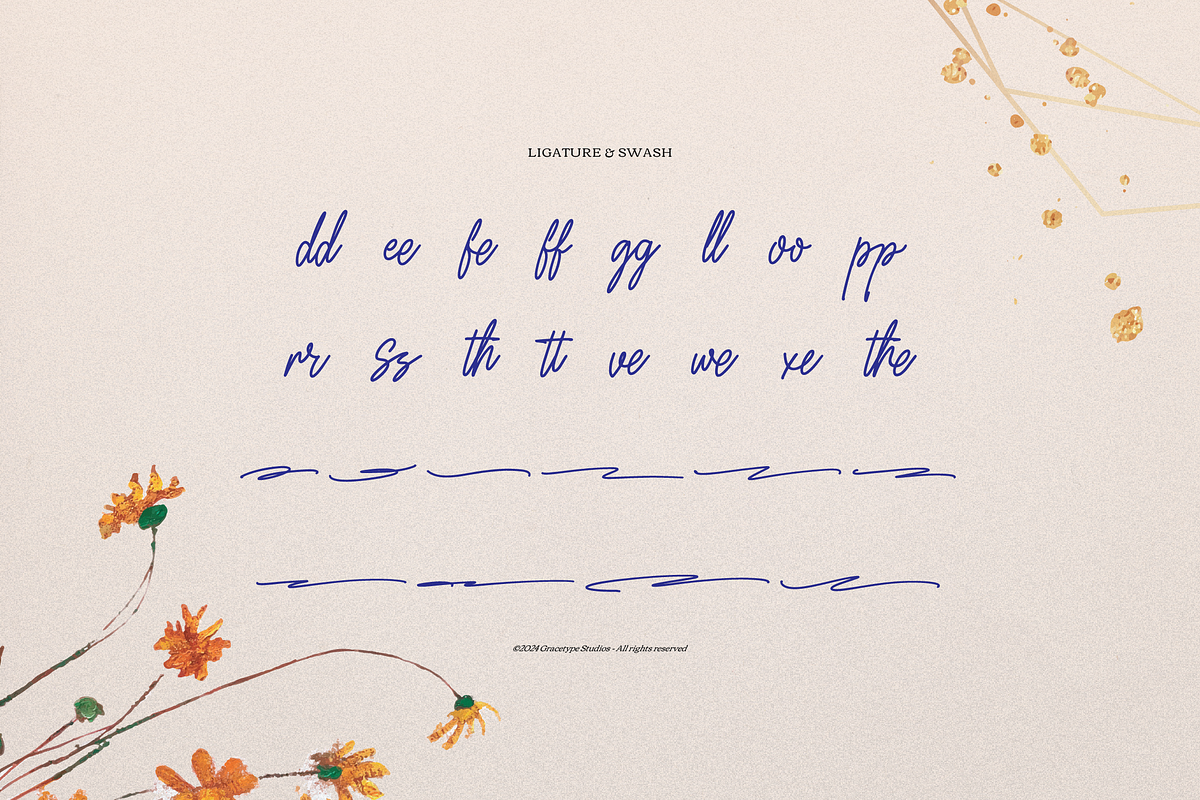 LIGATURE & SWASH
dd ee fe ff gg ll oo pp
rr ss th tt ve we xe the
©2024 Gracetype Studios - All rights reserved